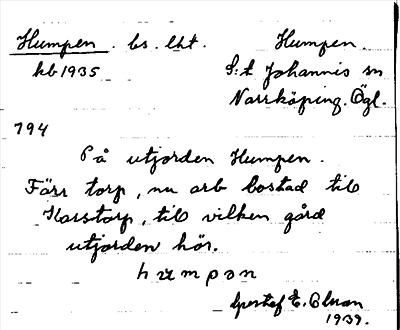 Humpen. bs. lht. Humpen.
kb 1935 S:t Johannis sn
Norrköping. Ögl.
794
På utjorden Humpen.
Förr torp, nu arb bostad till
Korstorp, till vilken gård
utjorden hör.
Gustaf E. Olsson
1939.